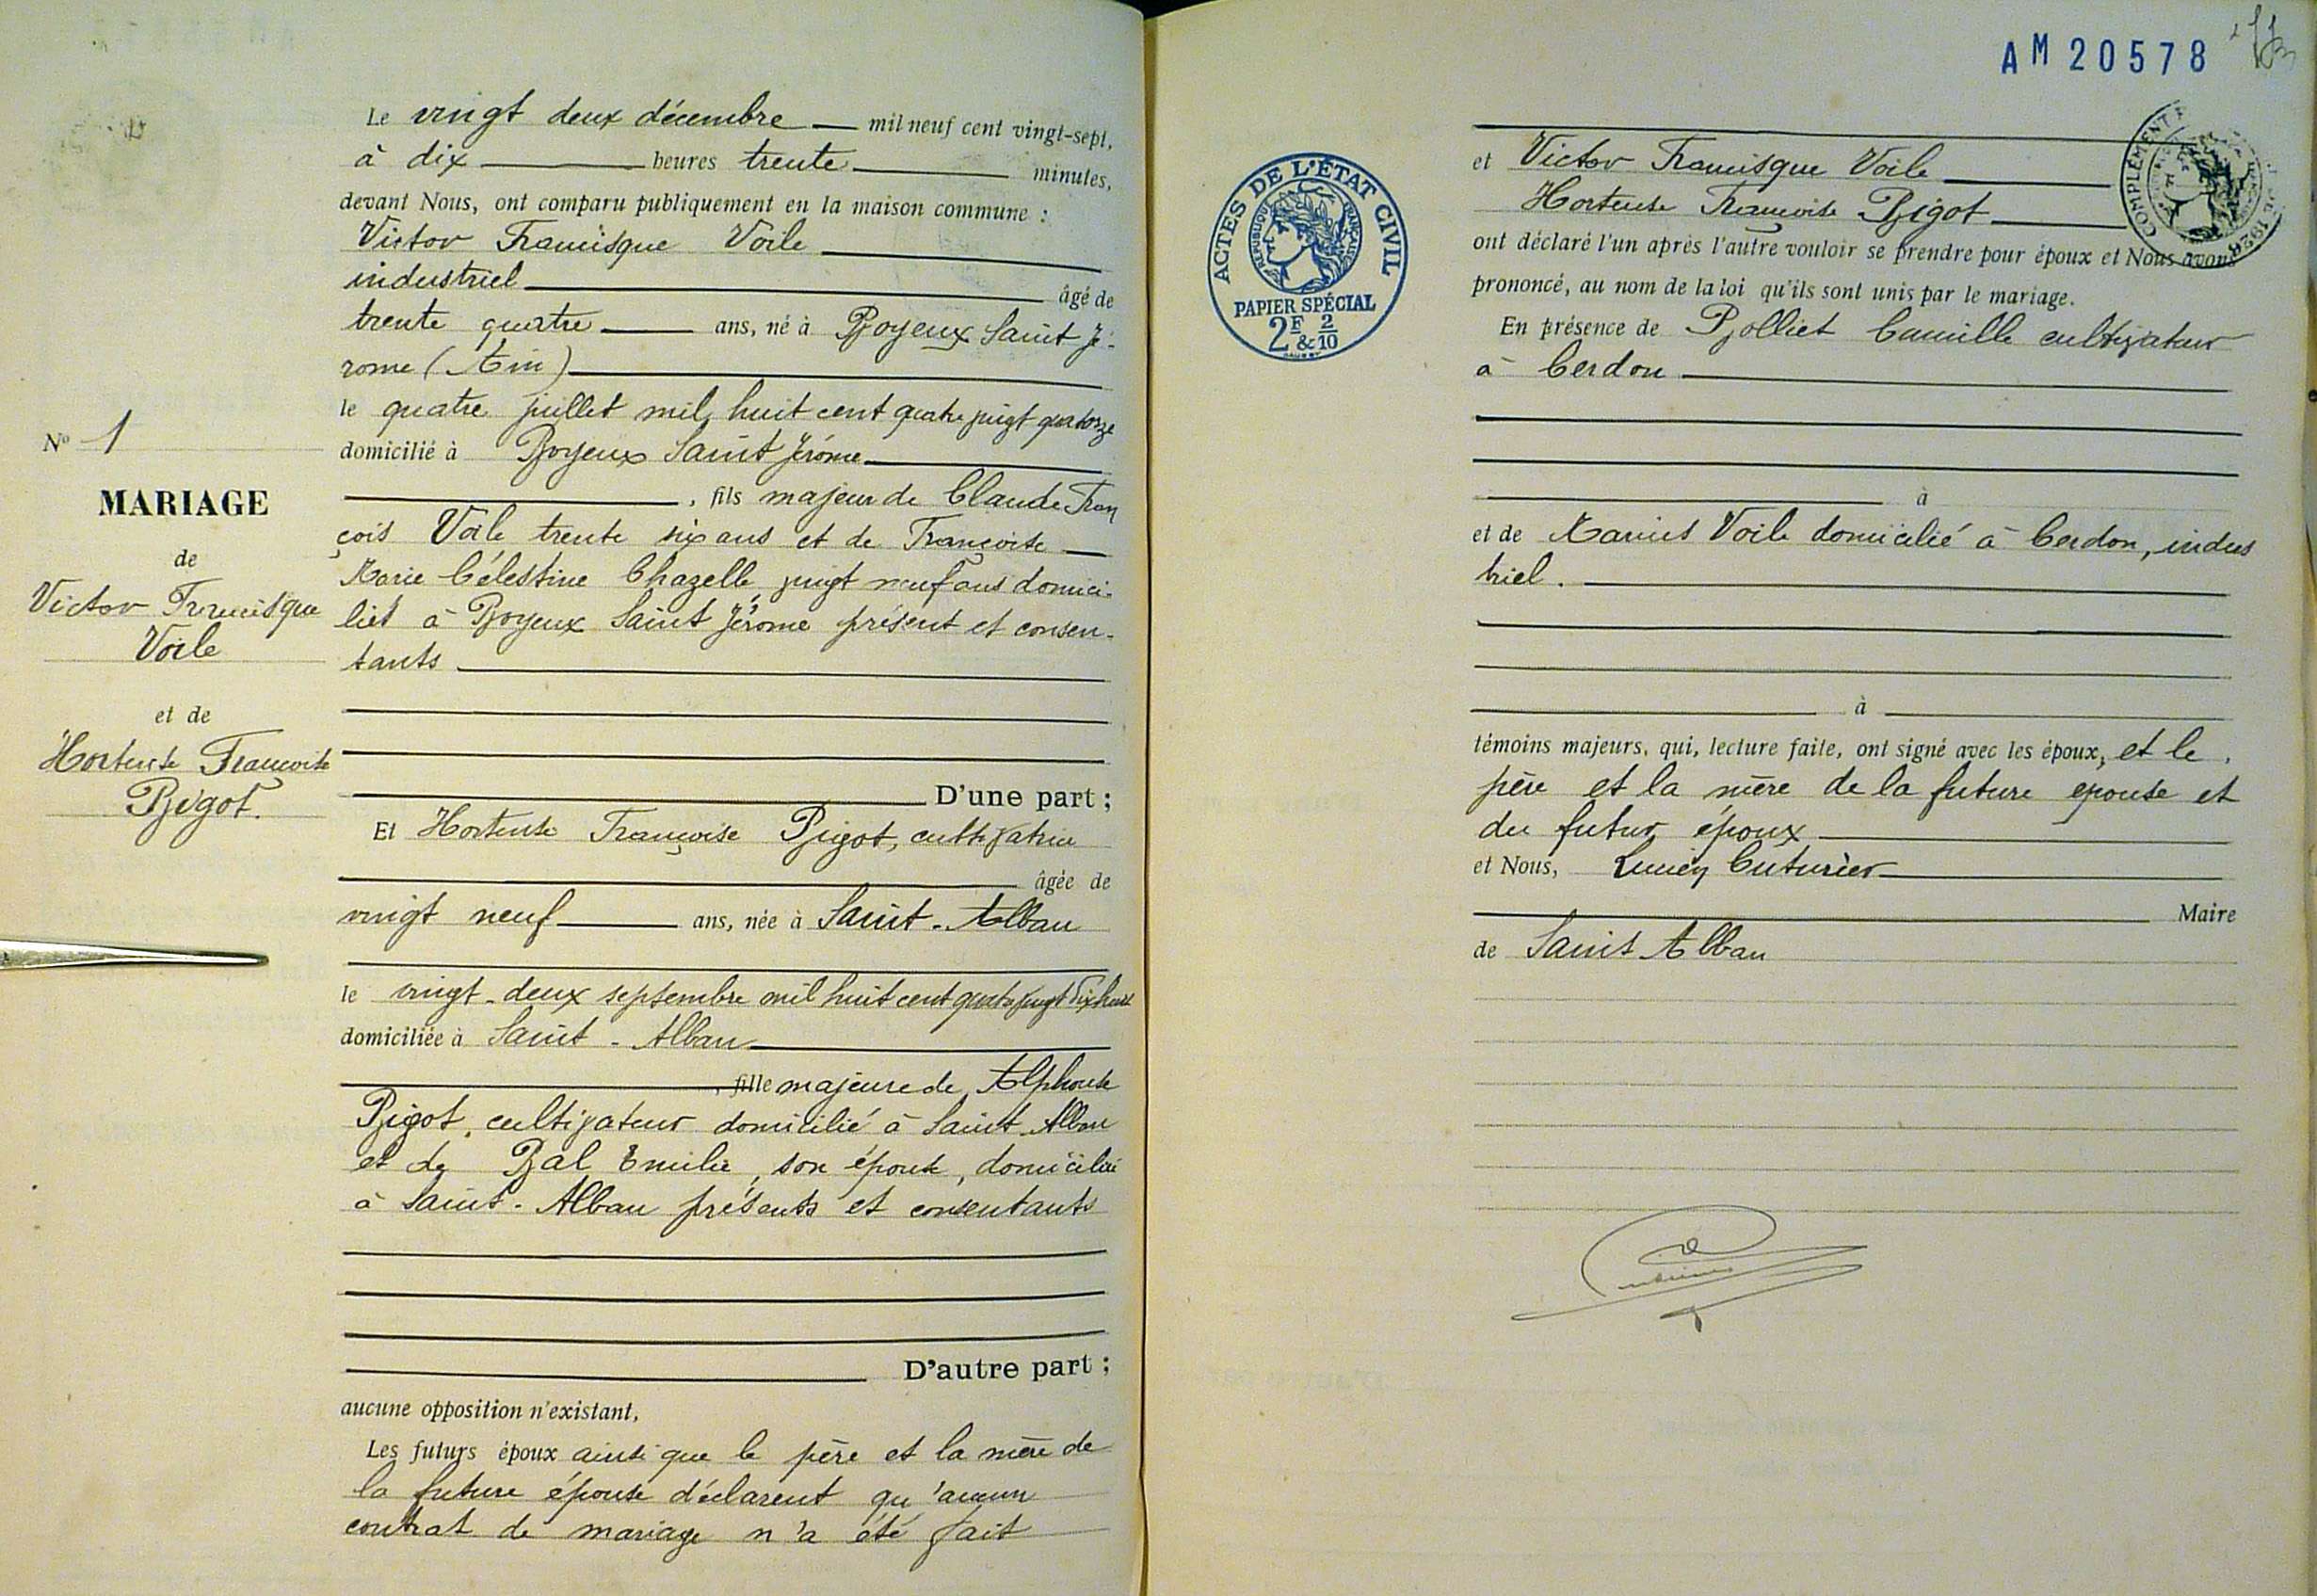 Le vingt deux décembre mil neuf cent vingt-sept,
à dix heures trente minutes,
devant Nous, ont comparu publiquement en la maison commune :
Victor Francisque Voile
industriel âgé de
trente quatre ans, né à Boyeux Saint Jé-
rome (Ain)
le quatre juillet mil huit cent quatre vingt quatorze
domicilié à Boyeux Saint Jérôme
, fils majeur de Claude Fran
çois Voile trente six ans et de Françoise
Marie Célestine Chazelle, vingt neuf ans domici-
liés à Boyeux Saint Jérome présent et consen-
tants
D'une part ;
Et Hortense Françoise Bigot, cultivatrice
âgée de
vingt neuf ans, née à Saint-Alban
le vingt-deux septembre mil huit cent quatre vingt dix huit
domiciliée à Saint-Alban
, fille majeure de Alphonse
Bigot, cultivateur domicilié à Saint-Alban
et de Bal Emilie, son épouse, domiciliée
à Saint-Alban présents et consentants
D'autre part ;
aucune opposition n'existant,
Les futurs époux ainsi que le père et la mère de
la future épouse déclarent qu'aucun
contrat de mariage n'a été fait
No 1
MARIAGE
de
Victor Francisque
Voile
et de
Hortense Françoise
Bigot.
AM 20578
ACTES DE L'ÉTAT CIVIL
RÉPUBLIQUE FRANÇAISE
PAPIER SPÉCIAL
2F & 2/10
COMPLÉMENT
et Victor Francisque Voile
Hortense Françoise Bigot
ont déclaré l'un après l'autre vouloir se prendre pour époux et Nous avons
prononcé, au nom de la loi qu'ils sont unis par le mariage.
En présence de Bolliet Camille cultivateur
à Cerdon
à
et de Marius Voile domicilié à Cerdon, indus
triel.
à
témoins majeurs, qui, lecture faite, ont signé avec les époux, et le
père et la mère de la future epouse et
du futur époux
et Nous, Lucien Cuturier
Maire
de Saint Alban